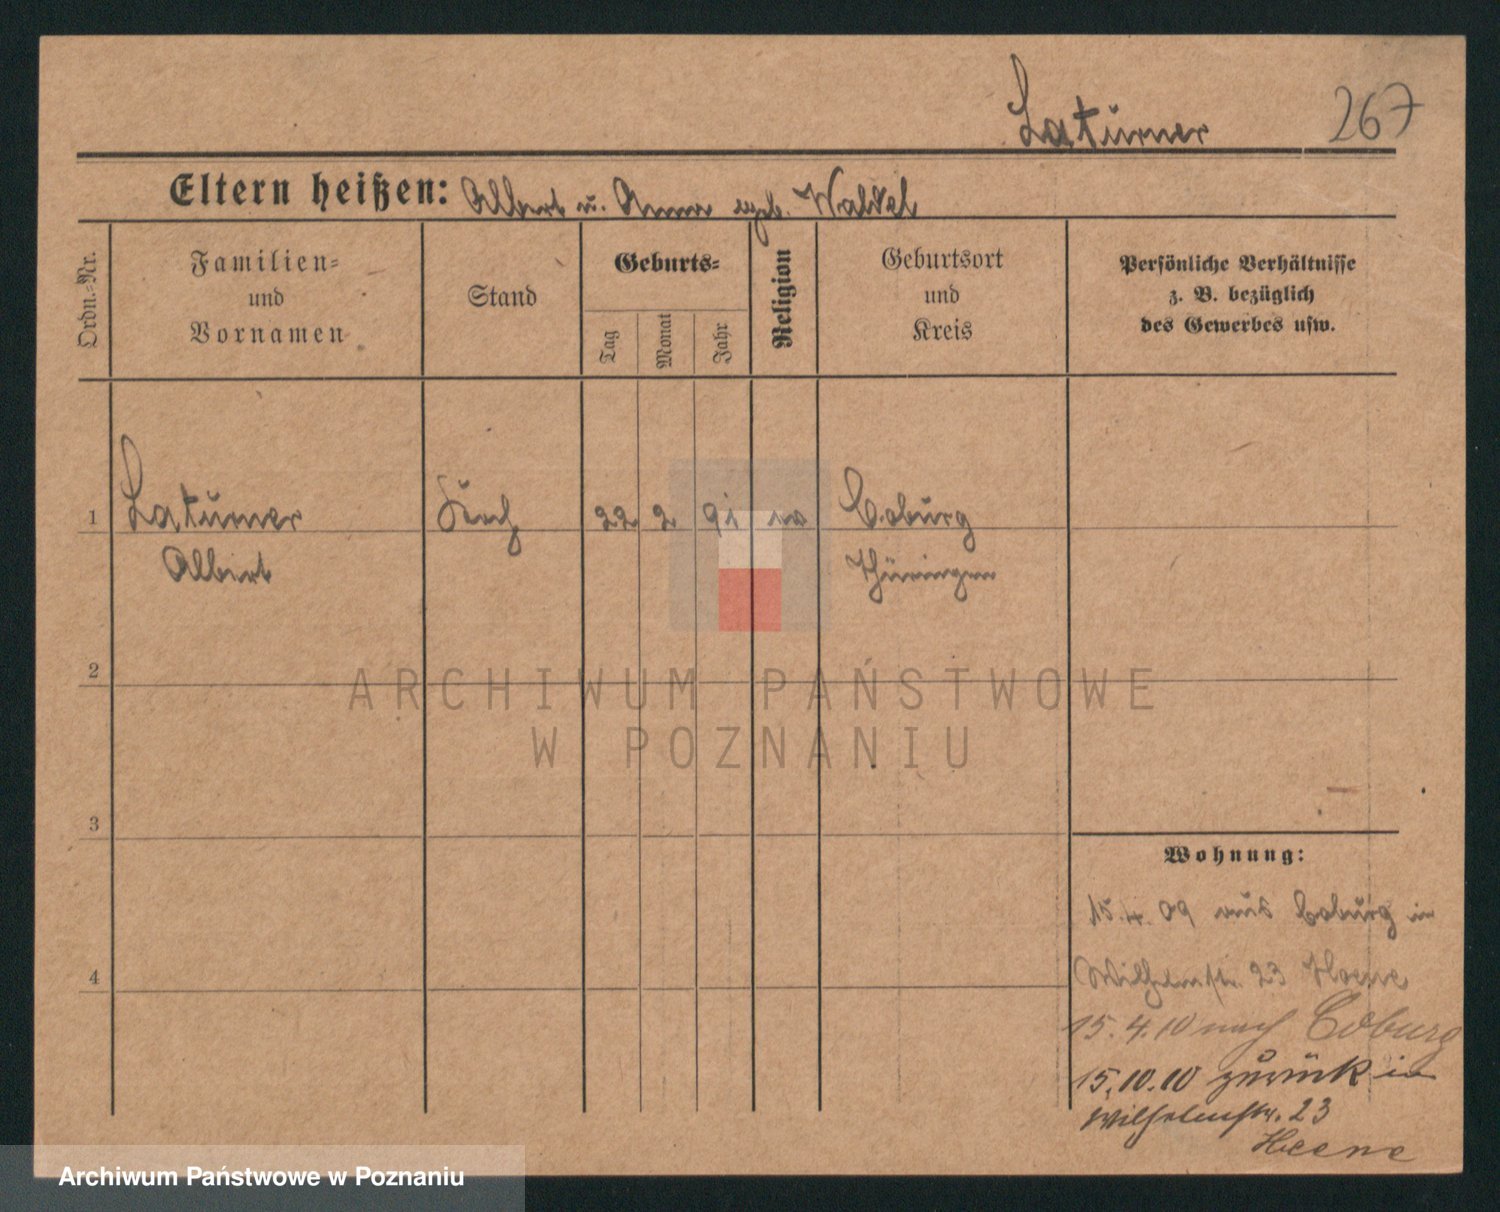 Laturner 267
Eltern heißen: Albert u. Anna geb.
Ordn.-Nr.
Familien-
und
Vornamen
Stand
Geburts-
Tag
Monat
Jahr
Religion
Geburtsort
und
Kreis
Persönliche Verhältnisse
z. B. bezüglich
des Gewerbes usw.
1 Laturner 22 2 91 Coburg
Albert Thüringen
2
ARCHIWUM PAŃSTWOWE
W POZNANIU
3
Wohnung:
15.4.09 aus Coburg in
4
Wilhelmstr. 23
15.4.10 nach Coburg
15.10.10 zurück in
Wilhelmstr. 23
Archiwum Państwowe w Poznaniu